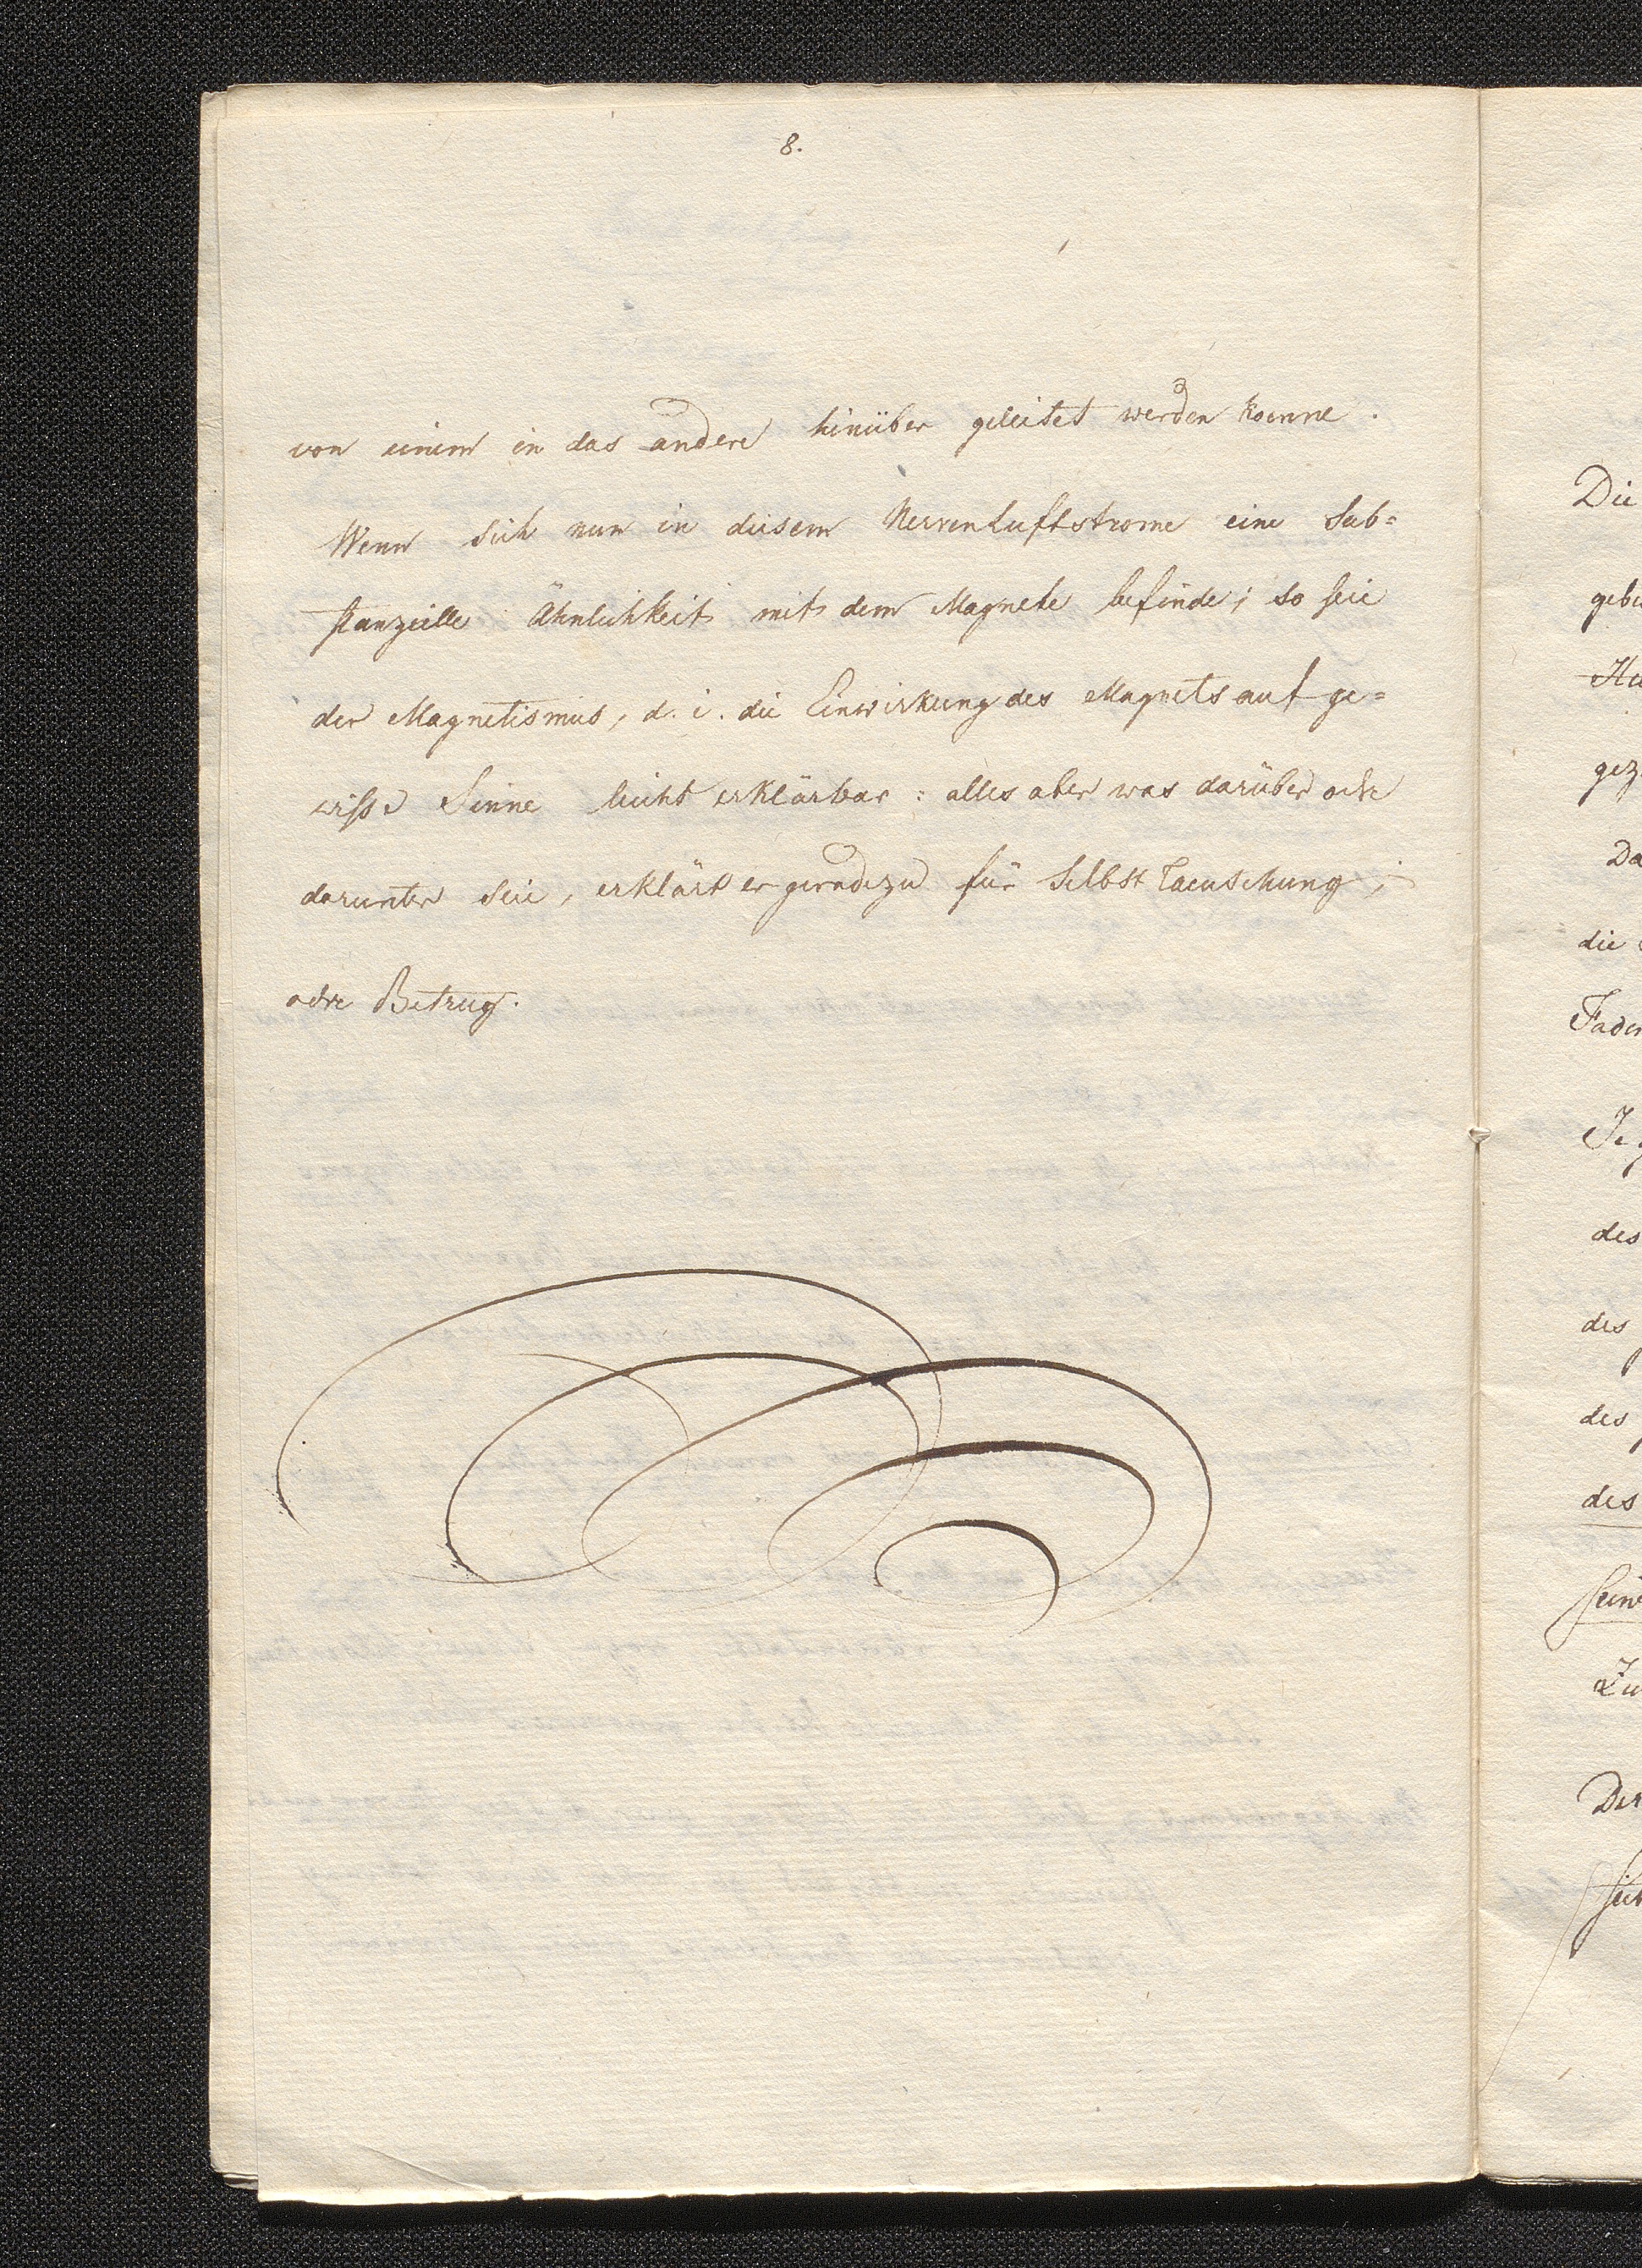 8.
von einem in das andere hinüber geleitet werden koenne.
Wenn sich nun in diesem Nervenluftstrome eine Sub-
stanzielle Ähnlichkeit mit dem Magnete befinde; so seie
der Magnetismus, d. i. die Einwirkung des Magnets auf ge-
wisse Sinne leicht erklärbar: alles aber was darüber oder
darunter seie, erklärt er geradezu für Selbst Taeuschung;
oder Betrug.
Die
des
des
des
des
die
Der